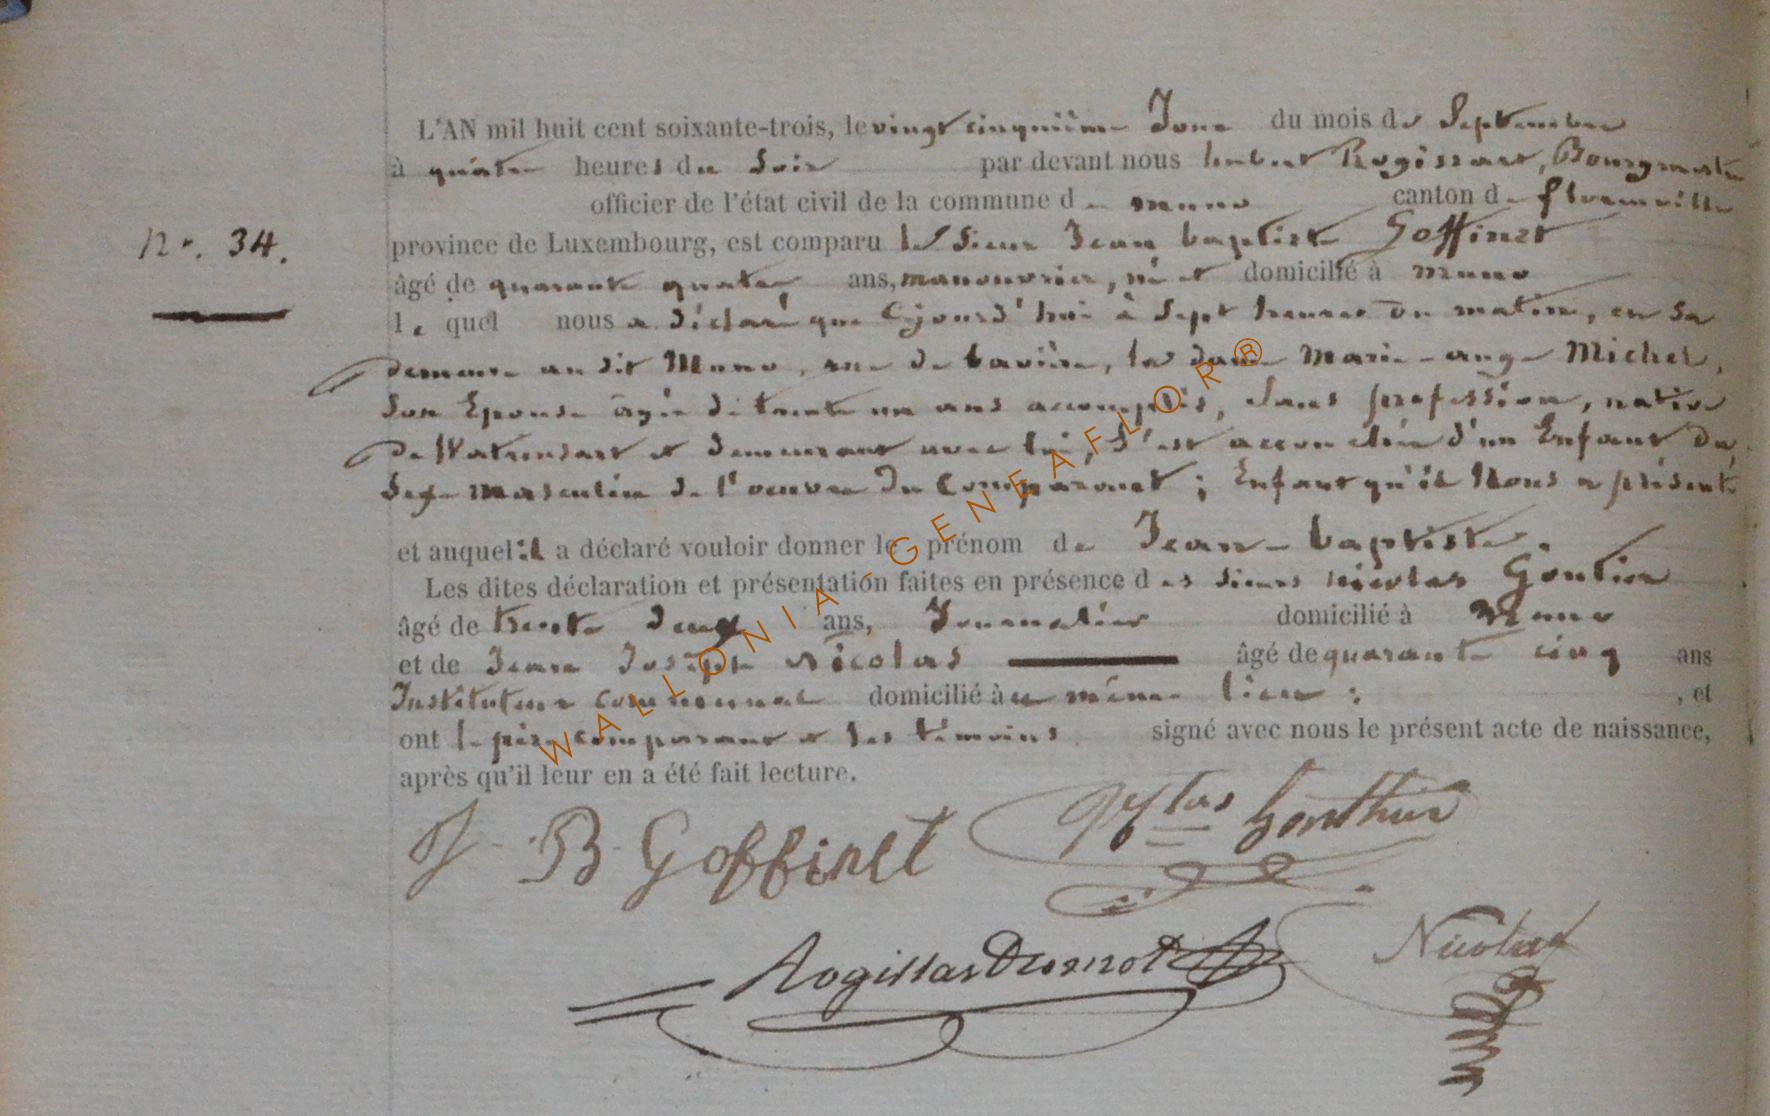 L'AN mil huit cent soixante-trois, le vingt cinquième Jour du mois de Septembre
à quatre heures du Soir par devant nous lambert Rogissart, Bourgmestre
officier de l'état civil de la commune de muno canton de florenville
N°. 34.
province de Luxembourg, est comparu le Sieur Jean baptiste Goffinet
âgé de quarante quatre ans, manouvrier, né et domicilié à muno
lequel nous a déclaré que Cejourd'hui à Sept heures du matin, en Sa
demeure au dit Muno, rue de baviere, la dame Marie-ange Michel,
Son Epouse âgée de trente un ans accomplis, Sans profession, native
de Watrinsart et demeurant avec lui, S'est accouchée d'un Enfant du
Sexe Masculin de l'oeuvre du Comparant ; Enfant qu'il Nous a présenté
et auquel il a déclaré vouloir donner le prénom de Jean-baptiste.
Les dites déclaration et présentation faites en présence des sieurs nicolas Gontier
âgé de trente deux ans, Journalier domicilié à Muno
et de Jean Joseph Nicolas âgé de quarante cinq ans
Instituteur communal domicilié au même lieu ; , et
ont le père comparant et les témoins signé avec nous le présent acte de naissance,
après qu'il leur en a été fait lecture.
J. B. Goffinet
Gonthier
Nicolas
WALLONIA-GENEAFLOR®